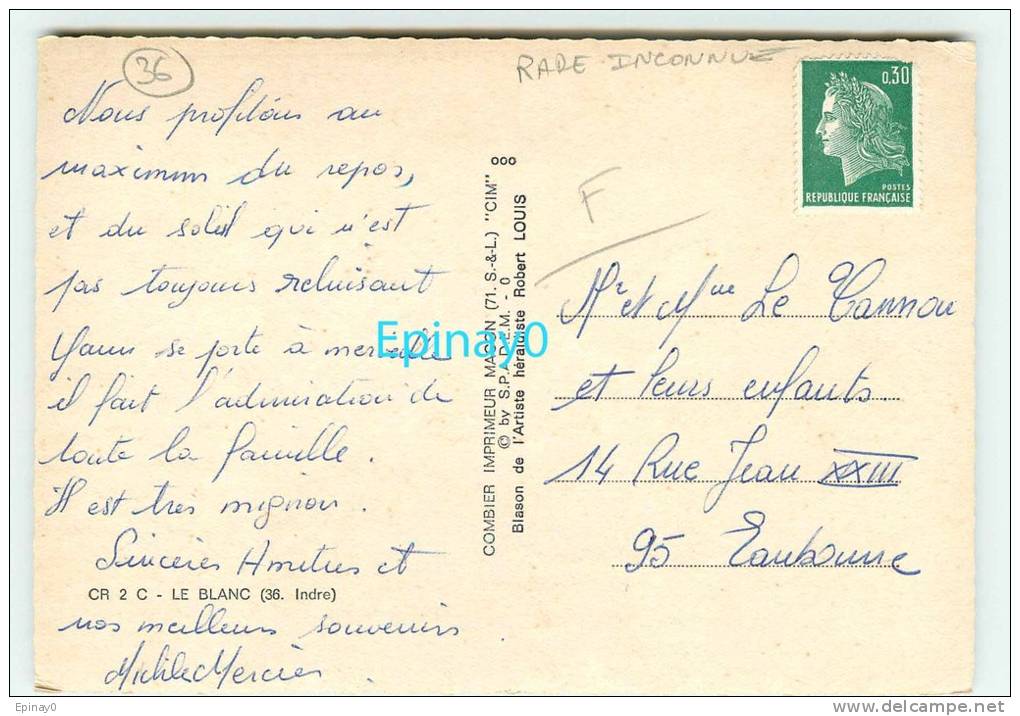 36
RARE INCONNUE
0,30
POSTES
REPUBLIQUE FRANÇAISE
F
Nous profitons au
maximum du repos,
et du soleil qui n'est
pas toujours reluisant
Yann se porte à merveille
il fait l'admiration de
toute la famille.
Il est très mignon.
Sincères Amitiés et
CR 2 C - LE BLANC (36. Indre)
nos meilleurs souvenirs
Michèle Mercier.
COMBIER IMPRIMEUR MACON (71. S.-&-L.) "CIM" ooo
© by S.P.A.D.E.M. - 0
Blason de l'Artiste héraldiste Robert LOUIS
Mr et Mme Le Cannou
et leurs enfants.
14 Rue Jean XXIII
95 Eaubonne
Epinay0
Epinay0
www.delcampe.net